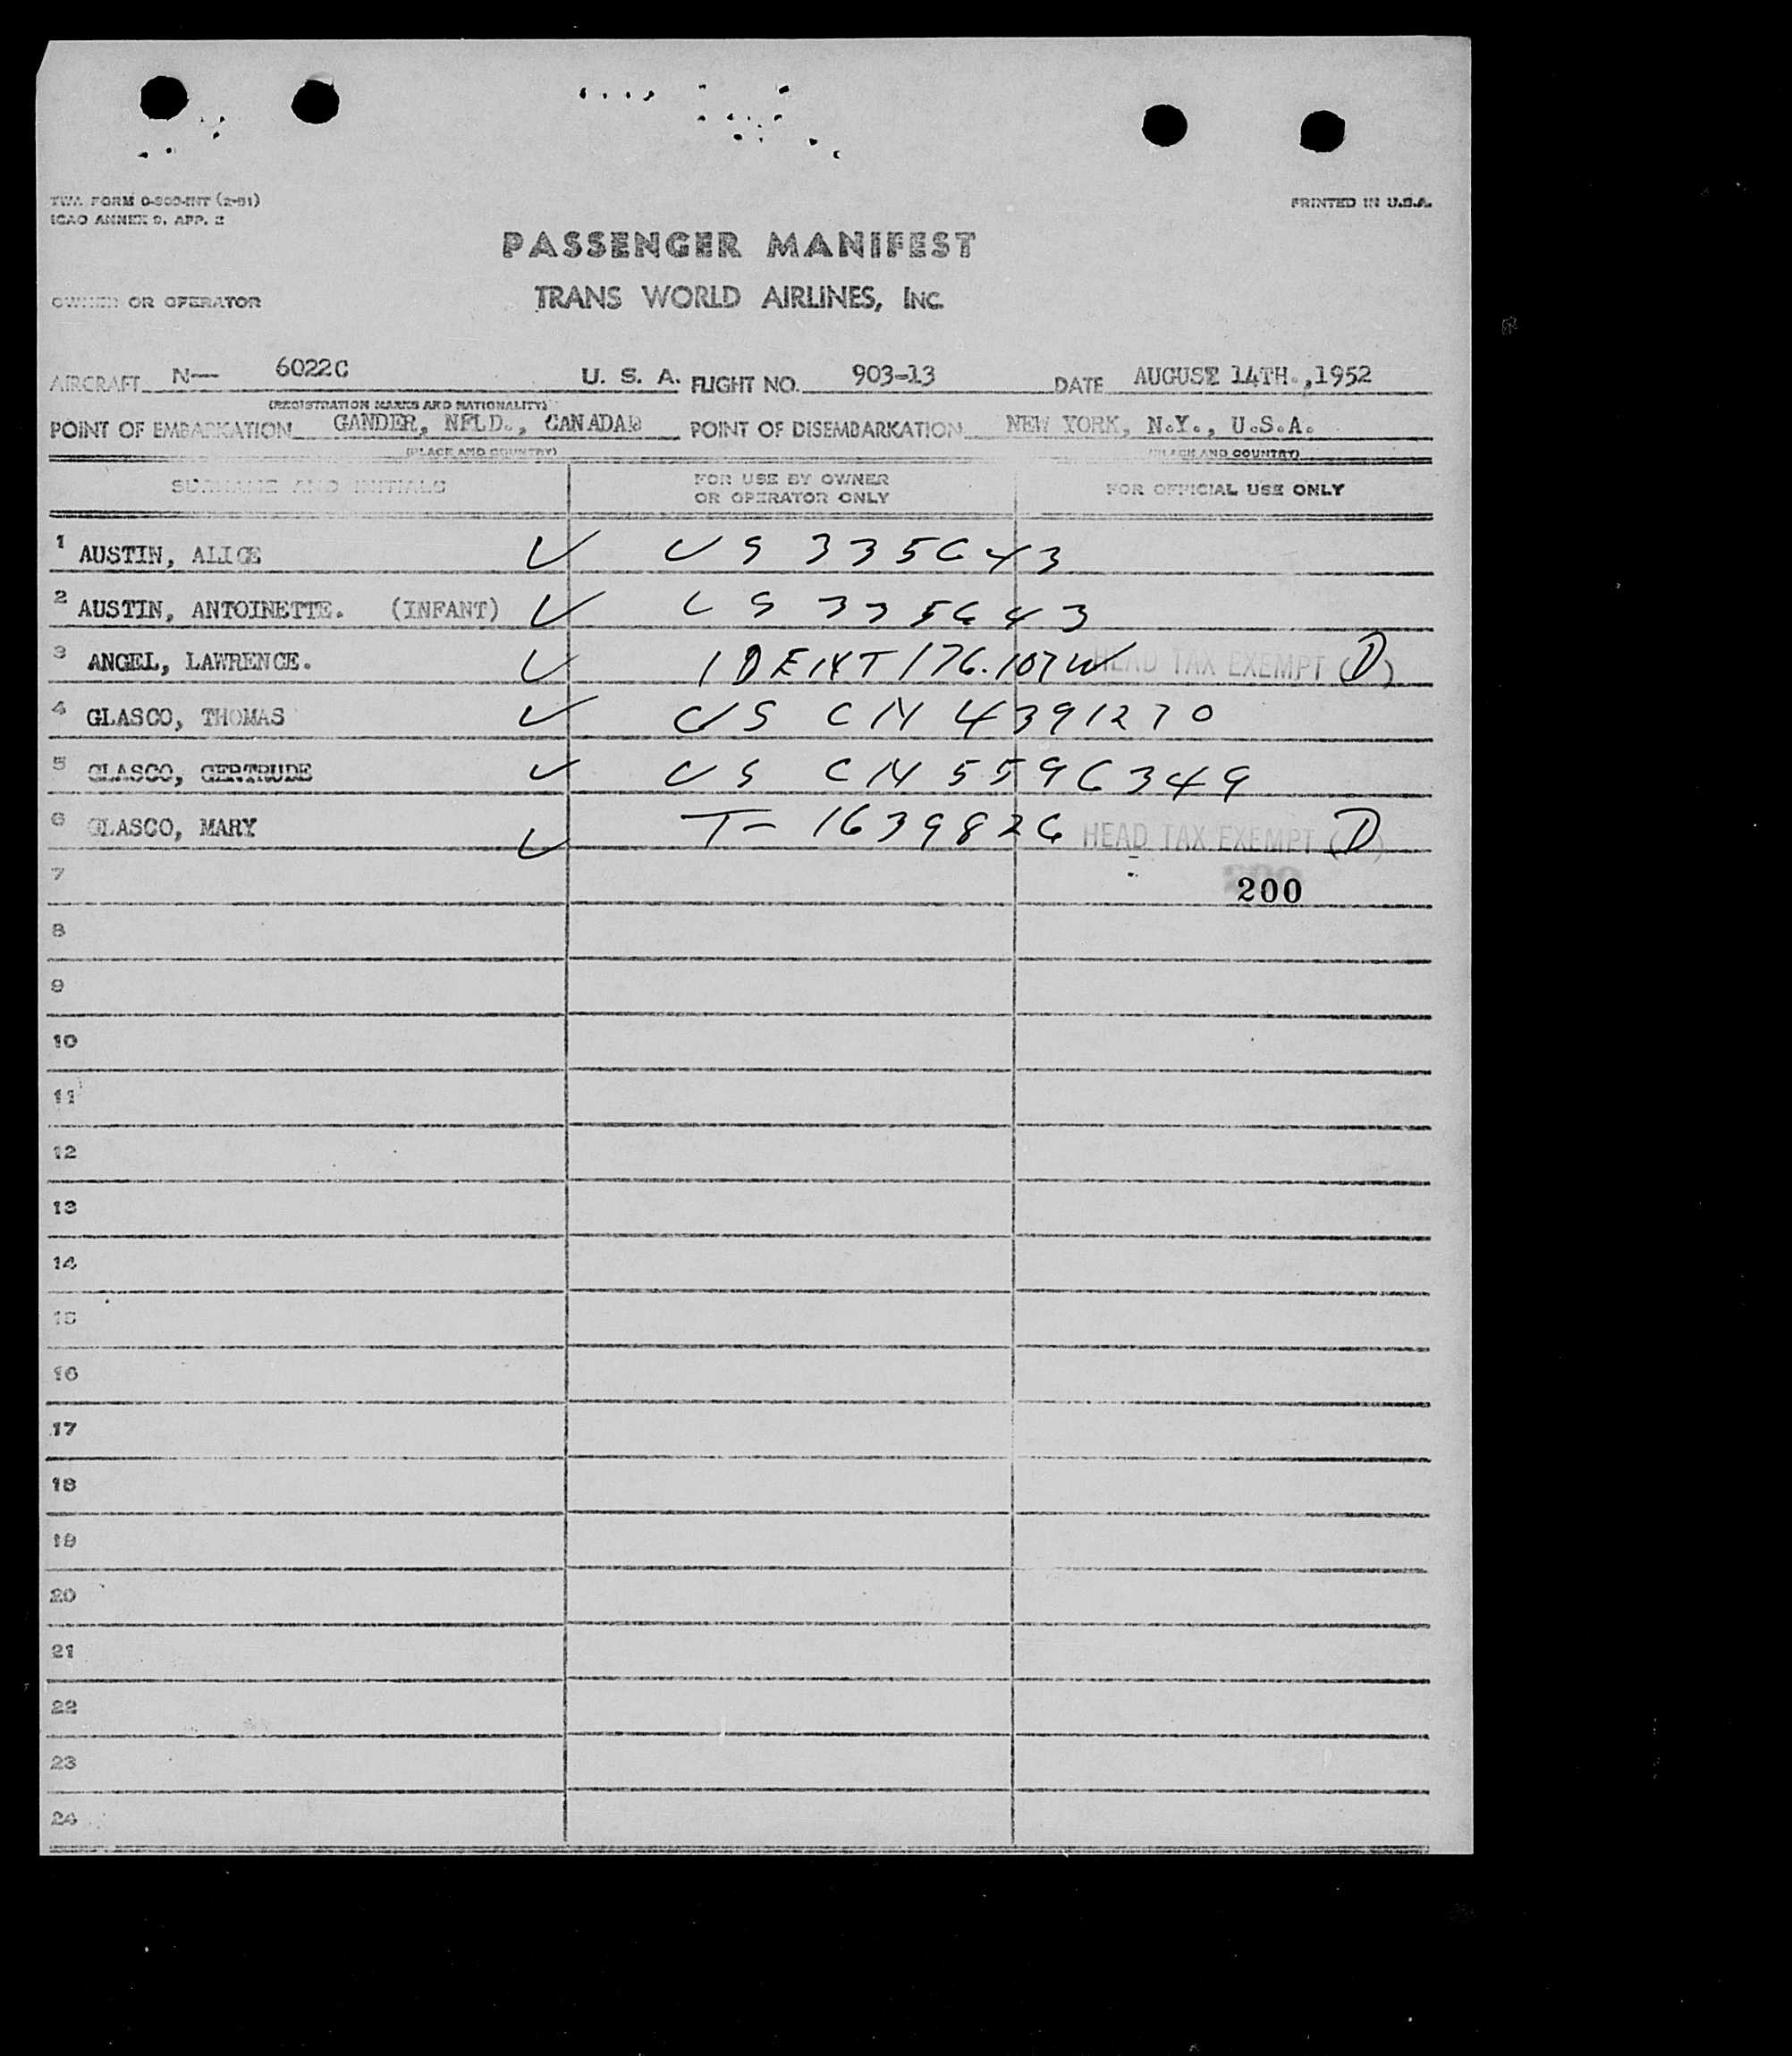 TWA FORM O-800-INT (2-51)
ICAO ANNEX 9, APP. 2
PRINTED IN U.S.A.
PASSENGER MANIFEST
OWNER OR OPERATOR TRANS WORLD AIRLINES, INC.
AIRCRAFT N— 6022C U. S. A. FLIGHT NO. 903-13 DATE AUGUSE 14TH.,1952
(REGISTRATION MARKS AND NATIONALITY)
POINT OF EMBARKATION GANDER, NFLD., CANADA POINT OF DISEMBARKATION NEW YORK, N.Y., U.S.A.
(PLACE AND COUNTRY) (PLACE AND COUNTRY)
SURNAME AND INITIALS FOR USE BY OWNER OR OPERATOR ONLY FOR OFFICIAL USE ONLY
1 AUSTIN, ALICE ✓ US 335643
2 AUSTIN, ANTOINETTE. (INFANT) ✓ US 335643
3 ANGEL, LAWRENCE. ✓ IDENT 176.107W HEAD TAX EXEMPT (D)
4 GLASCO, THOMAS ✓ US CN 4391270
5 GLASCO, GERTRUDE ✓ US CN 5596349
6 GLASCO, MARY ✓ T- 1639826 HEAD TAX EXEMPT (D)
7 200
8
9
10
11
12
13
14
15
16
17
18
19
20
21
22
23
24